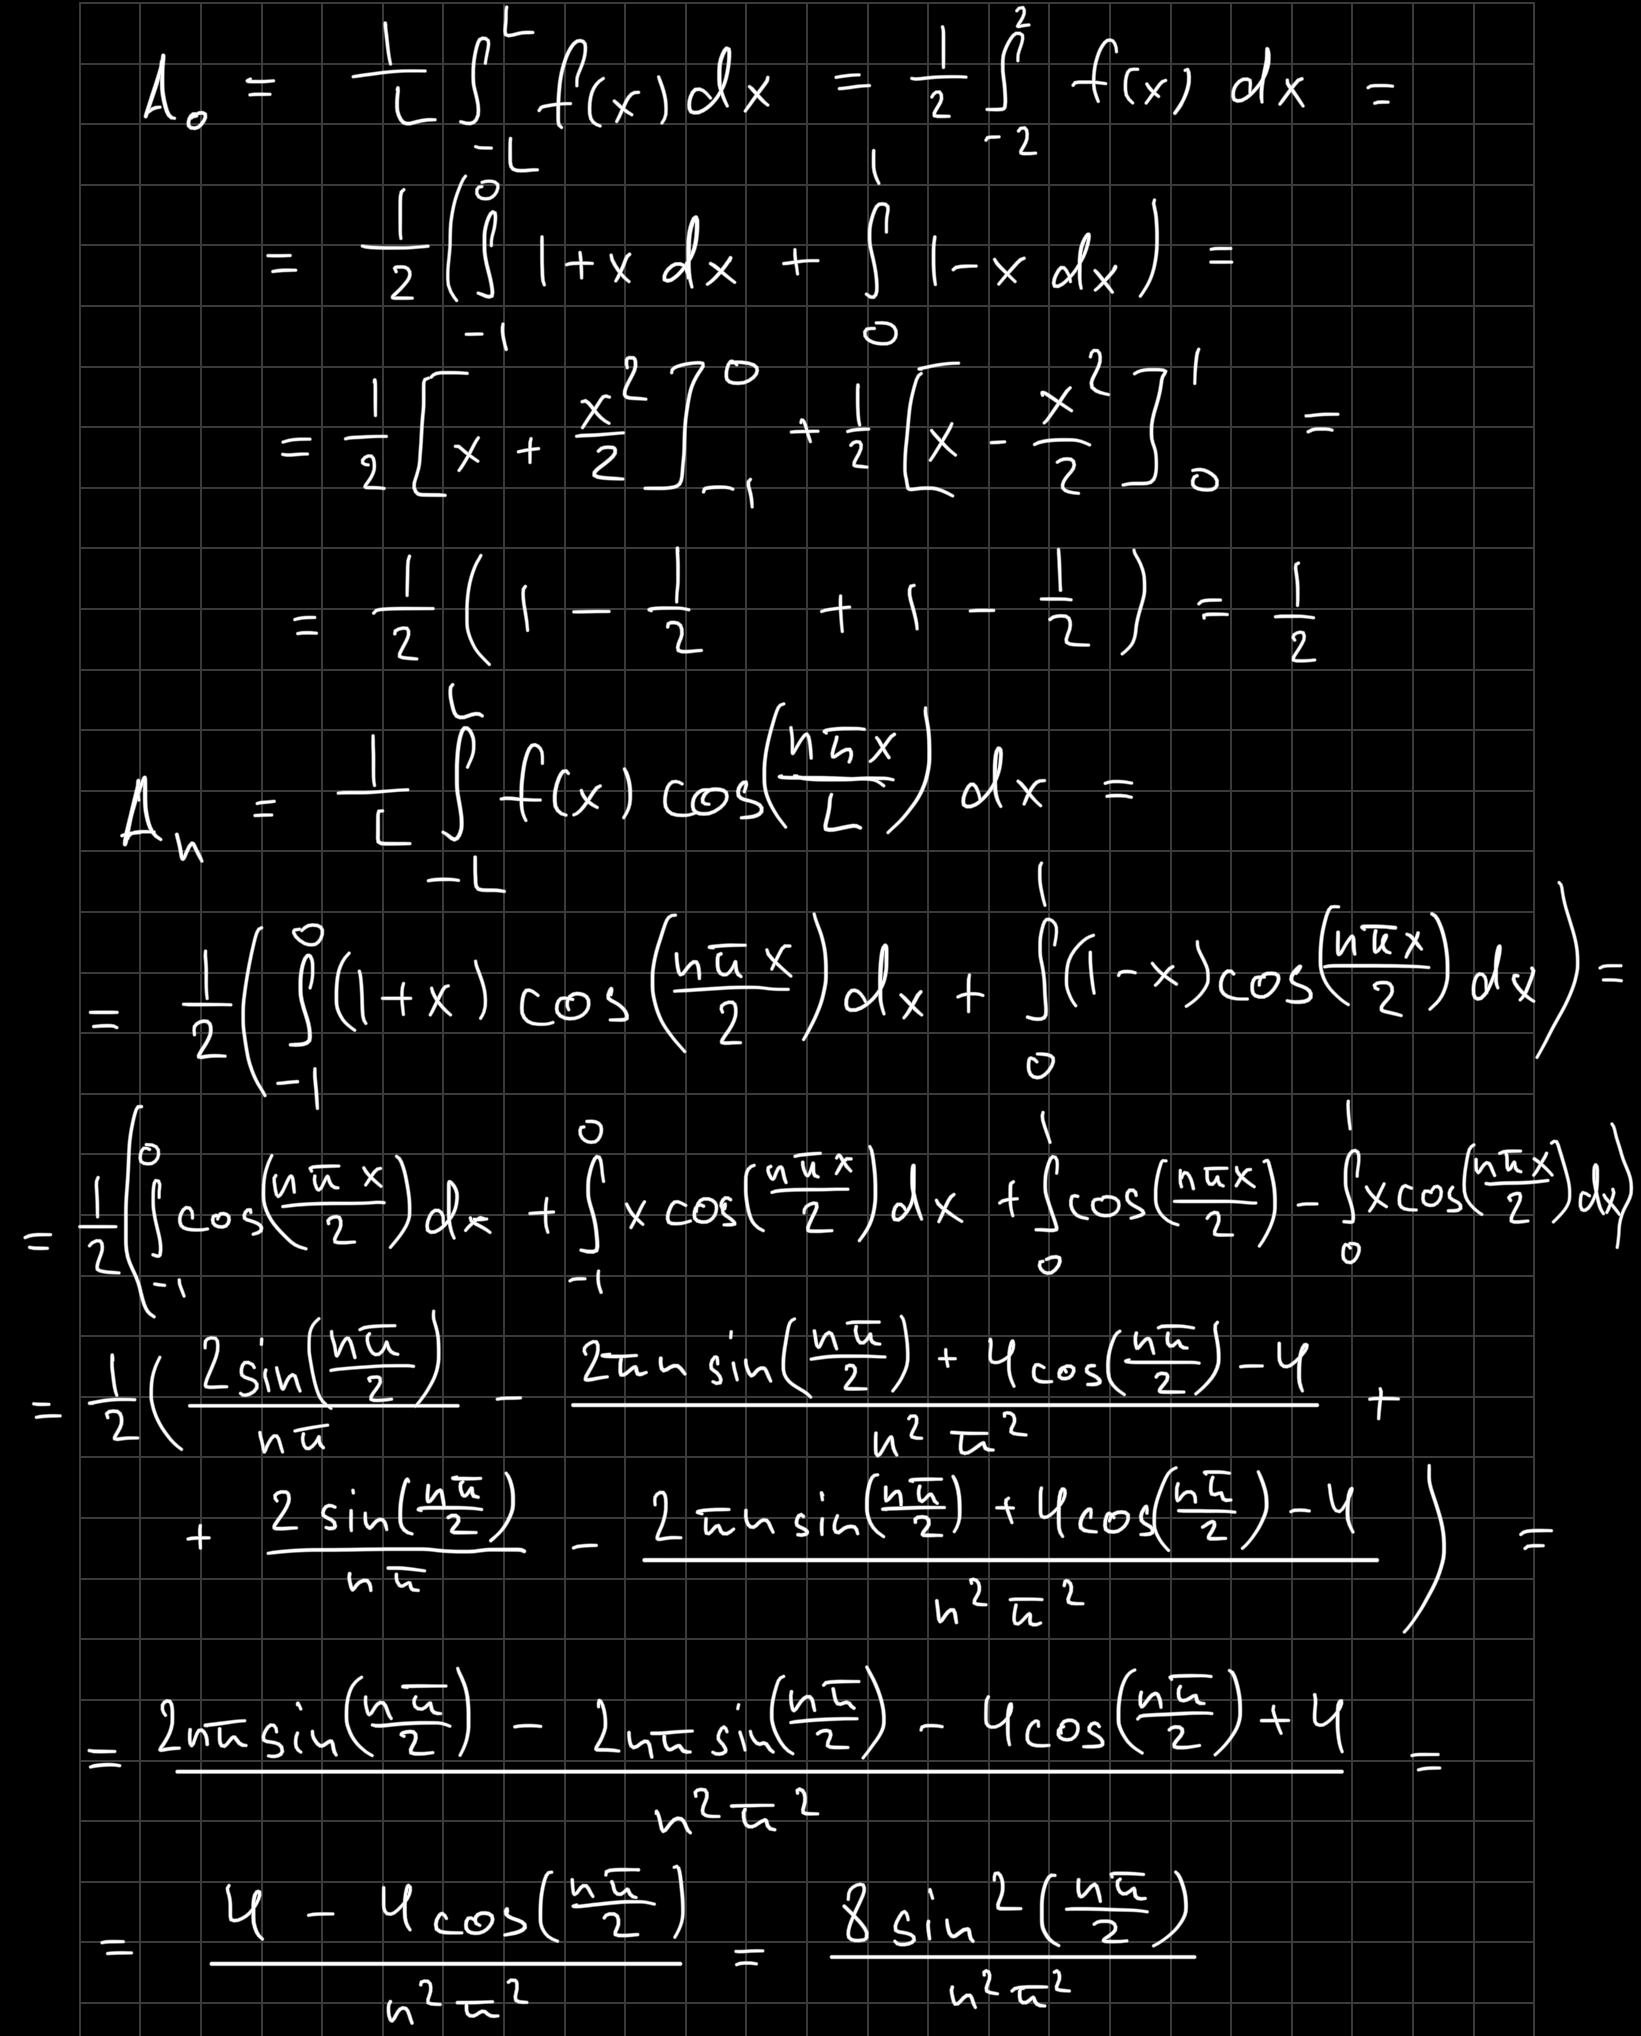 A₀ = 1/L ∫_{-L}^{L} f(x) dx = 1/2 ∫_{-2}^{2} f(x) dx =
= 1/2 (∫_{-1}^{0} 1+x dx + ∫_{0}^{1} 1-x dx) =
= 1/2 [x + x²/2]_{-1}^{0} + 1/2 [x - x²/2]_{0}^{1} =
= 1/2 (1 - 1/2 + 1 - 1/2) = 1/2
Aₙ = 1/L ∫_{-L}^{L} f(x) cos(nπx/L) dx =
= 1/2 (∫_{-1}^{0} (1+x) cos(nπx/2) dx + ∫_{0}^{1} (1-x) cos(nπx/2) dx) =
= 1/2 (∫_{-1}^{0} cos(nπx/2) dx + ∫_{-1}^{0} x cos(nπx/2) dx + ∫_{0}^{1} cos(nπx/2) - ∫_{0}^{1} x cos(nπx/2) dx)
= 1/2 ( 2 sin(nπ/2) / nπ - (2πn sin(nπ/2) + 4 cos(nπ/2) - 4) / n²π² +
+ 2 sin(nπ/2) / nπ - (2πn sin(nπ/2) + 4 cos(nπ/2) - 4) / n²π² ) =
= (2nπ sin(nπ/2) - 2nπ sin(nπ/2) - 4 cos(nπ/2) + 4) / n²π² =
= (4 - 4 cos(nπ/2)) / n²π² = 8 sin²(nπ/2) / n²π²